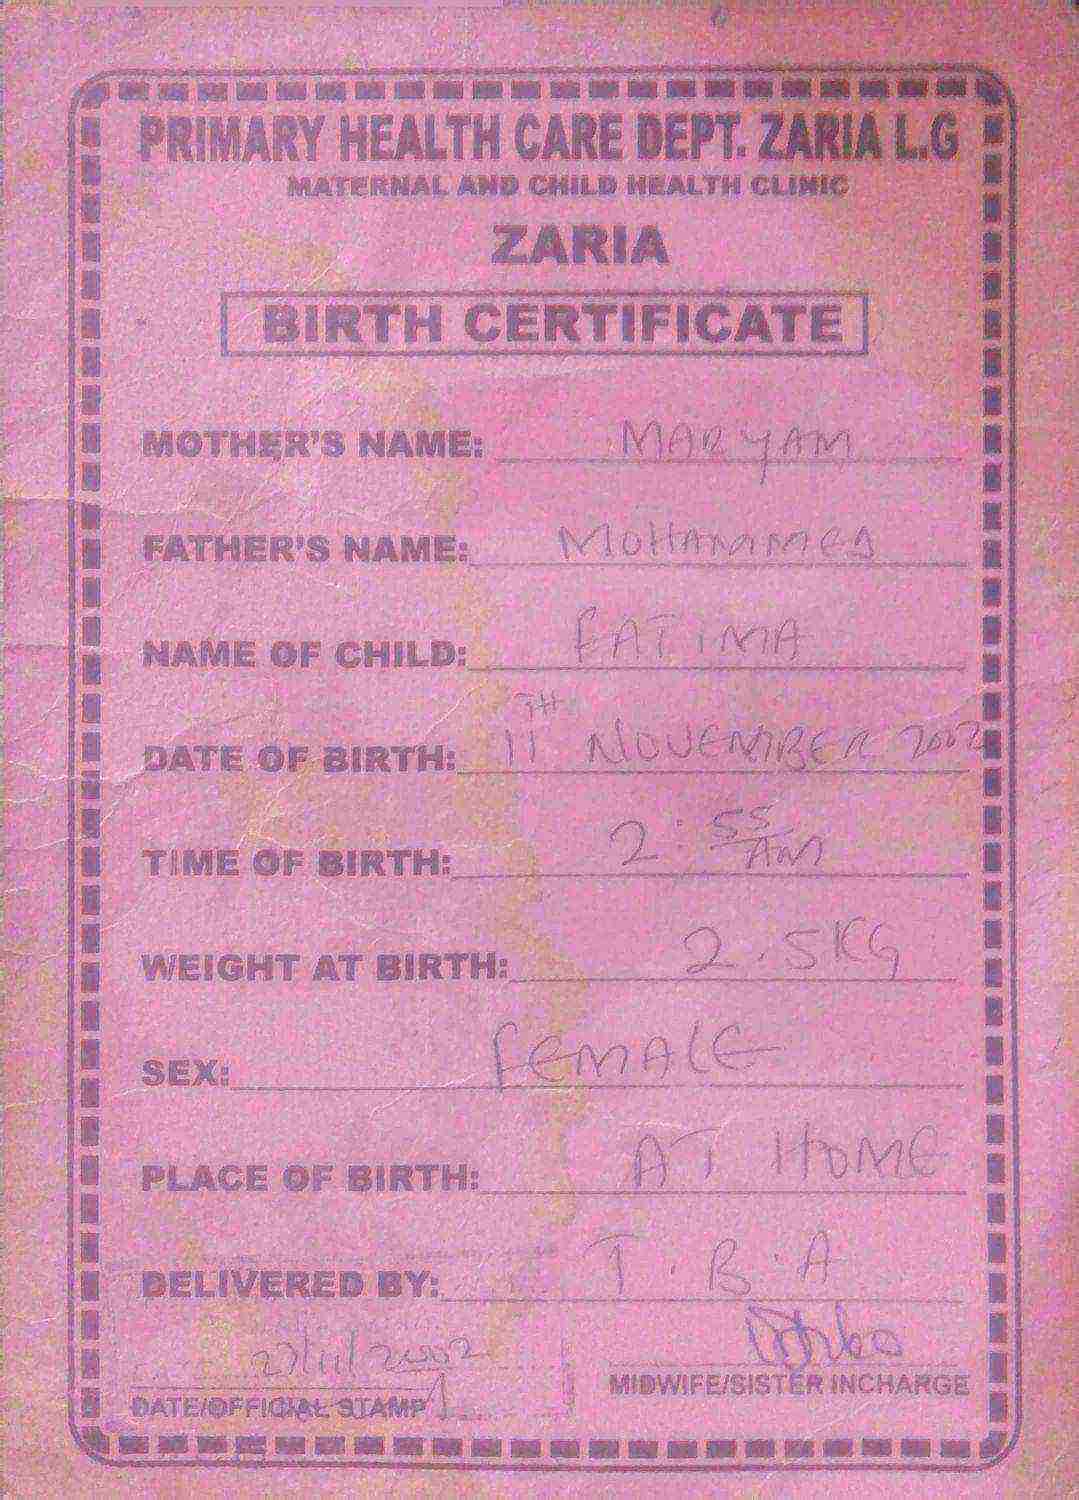 PRIMARY HEALTH CARE DEPT. ZARIA L.G
MATERNAL AND CHILD HEALTH CLINIC
ZARIA
BIRTH CERTIFICATE
MOTHER'S NAME: MARYAM
FATHER'S NAME: MOHAMMED
NAME OF CHILD: FATIMA
DATE OF BIRTH: 11TH NOVEMBER 2002
TIME OF BIRTH: 2:55 AM
WEIGHT AT BIRTH: 2.5KG
SEX: FEMALE
PLACE OF BIRTH: AT HOME
DELIVERED BY: T.B.A
27/11/2002
MIDWIFE/SISTER INCHARGE
DATE/OFFICIAL STAMP